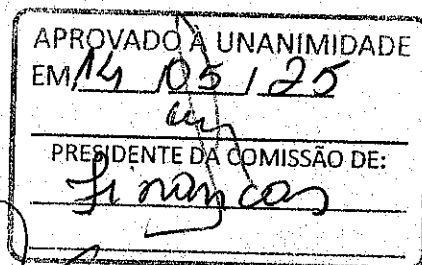 APROVADO À UNANIMIDADE
EM 14 / 05 / 25
PRESIDENTE DA COMISSÃO DE:
Finanças